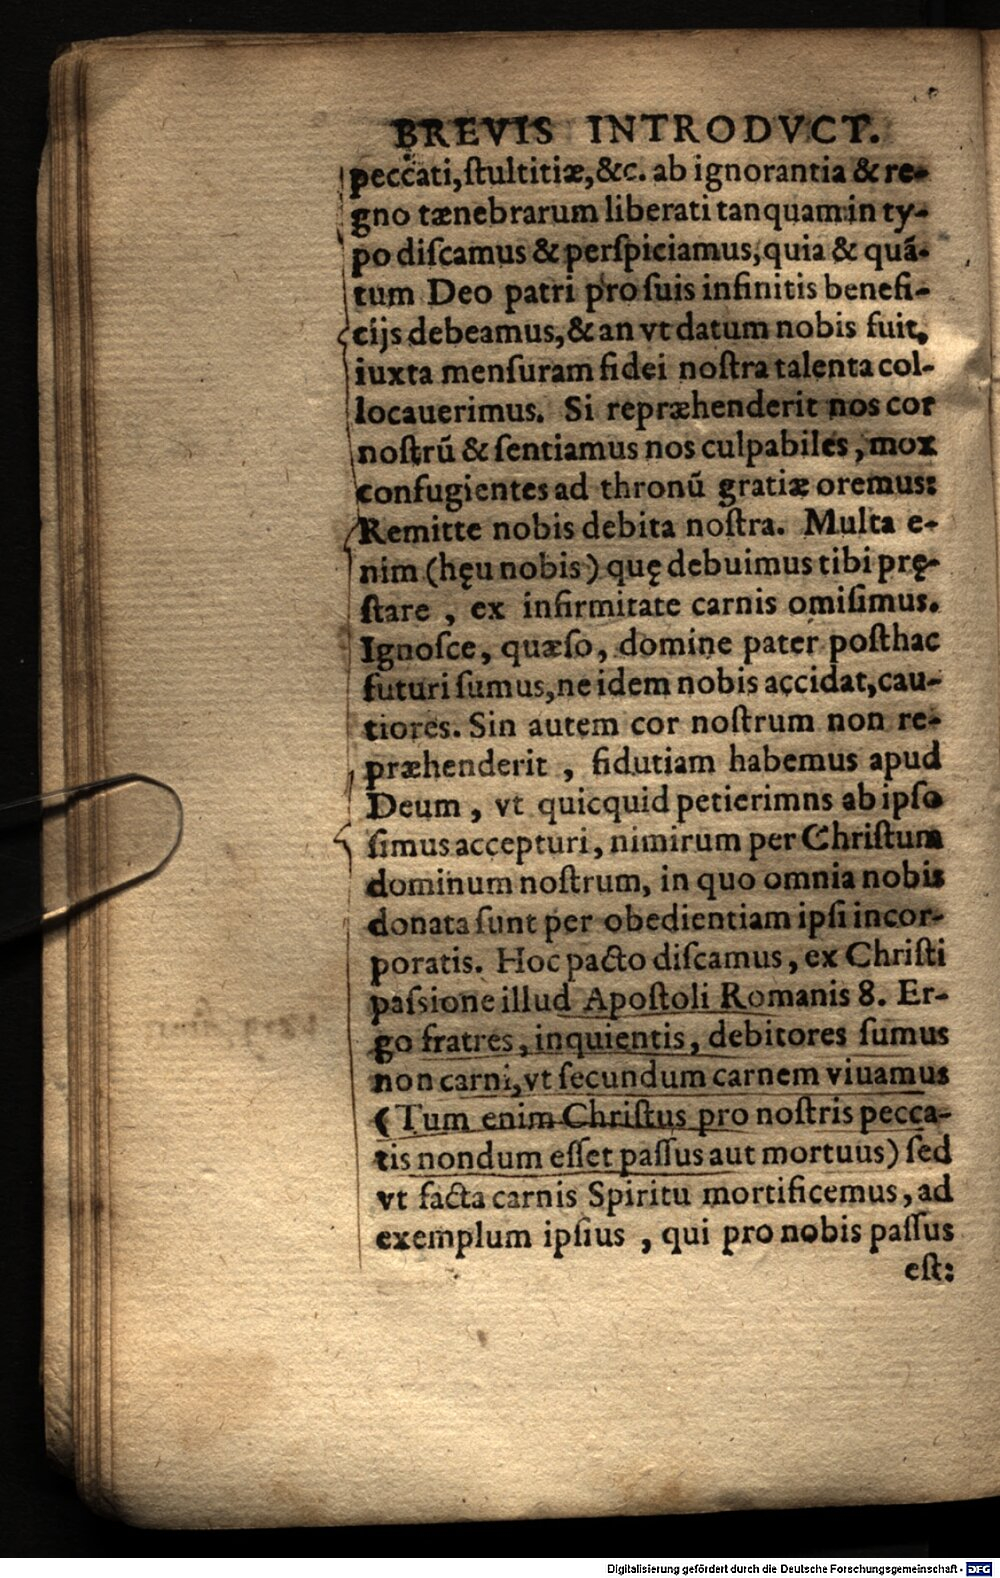 BREVIS INTRODVCT.
peccati, ſtultitiæ, &c. ab ignorantia & re-
gno tænebrarum liberati tanquam in ty-
po diſcamus & perſpiciamus, quia & quā-
tum Deo patri pro ſuis infinitis benefi-
cijs debeamus, & an vt datum nobis fuit,
iuxta menſuram fidei noſtra talenta col-
locauerimus. Si repræhenderit nos cor
noſtrū & ſentiamus nos culpabiles, mox
confugientes ad thronū gratiæ oremus:
Remitte nobis debita noſtra. Multa e-
nim (hęu nobis) quę debuimus tibi prę-
ſtare, ex infirmitate carnis omiſimus.
Ignoſce, quæſo, domine pater poſthac
futuri ſumus, ne idem nobis accidat, cau-
tiores. Sin autem cor noſtrum non re-
præhenderit, fidutiam habemus apud
Deum, vt quicquid petierimns ab ipſo
ſimus accepturi, nimirum per Chriſtum
dominum noſtrum, in quo omnia nobis
donata ſunt per obedientiam ipſi incor-
poratis. Hoc pacto diſcamus, ex Chriſti
paſsione illud Apoſtoli Romanis 8. Er-
go fratres, inquientis, debitores ſumus
non carni, vt ſecundum carnem viuamus
(Tum enim Chriſtus pro noſtris pecca-
tis nondum eſſet paſſus aut mortuus) ſed
vt facta carnis Spiritu mortificemus, ad
exemplum ipſius, qui pro nobis paſſus
eſt:
Digitalisierung gefördert durch die Deutsche Forschungsgemeinschaft - DFG